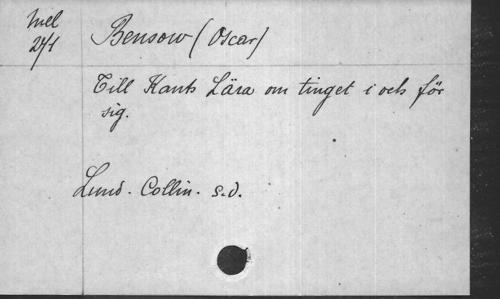 Mel
271
Bensow (Oscar)
Till Kants Lära om tinget i och för
sig.
Lund. Collin. s.d.